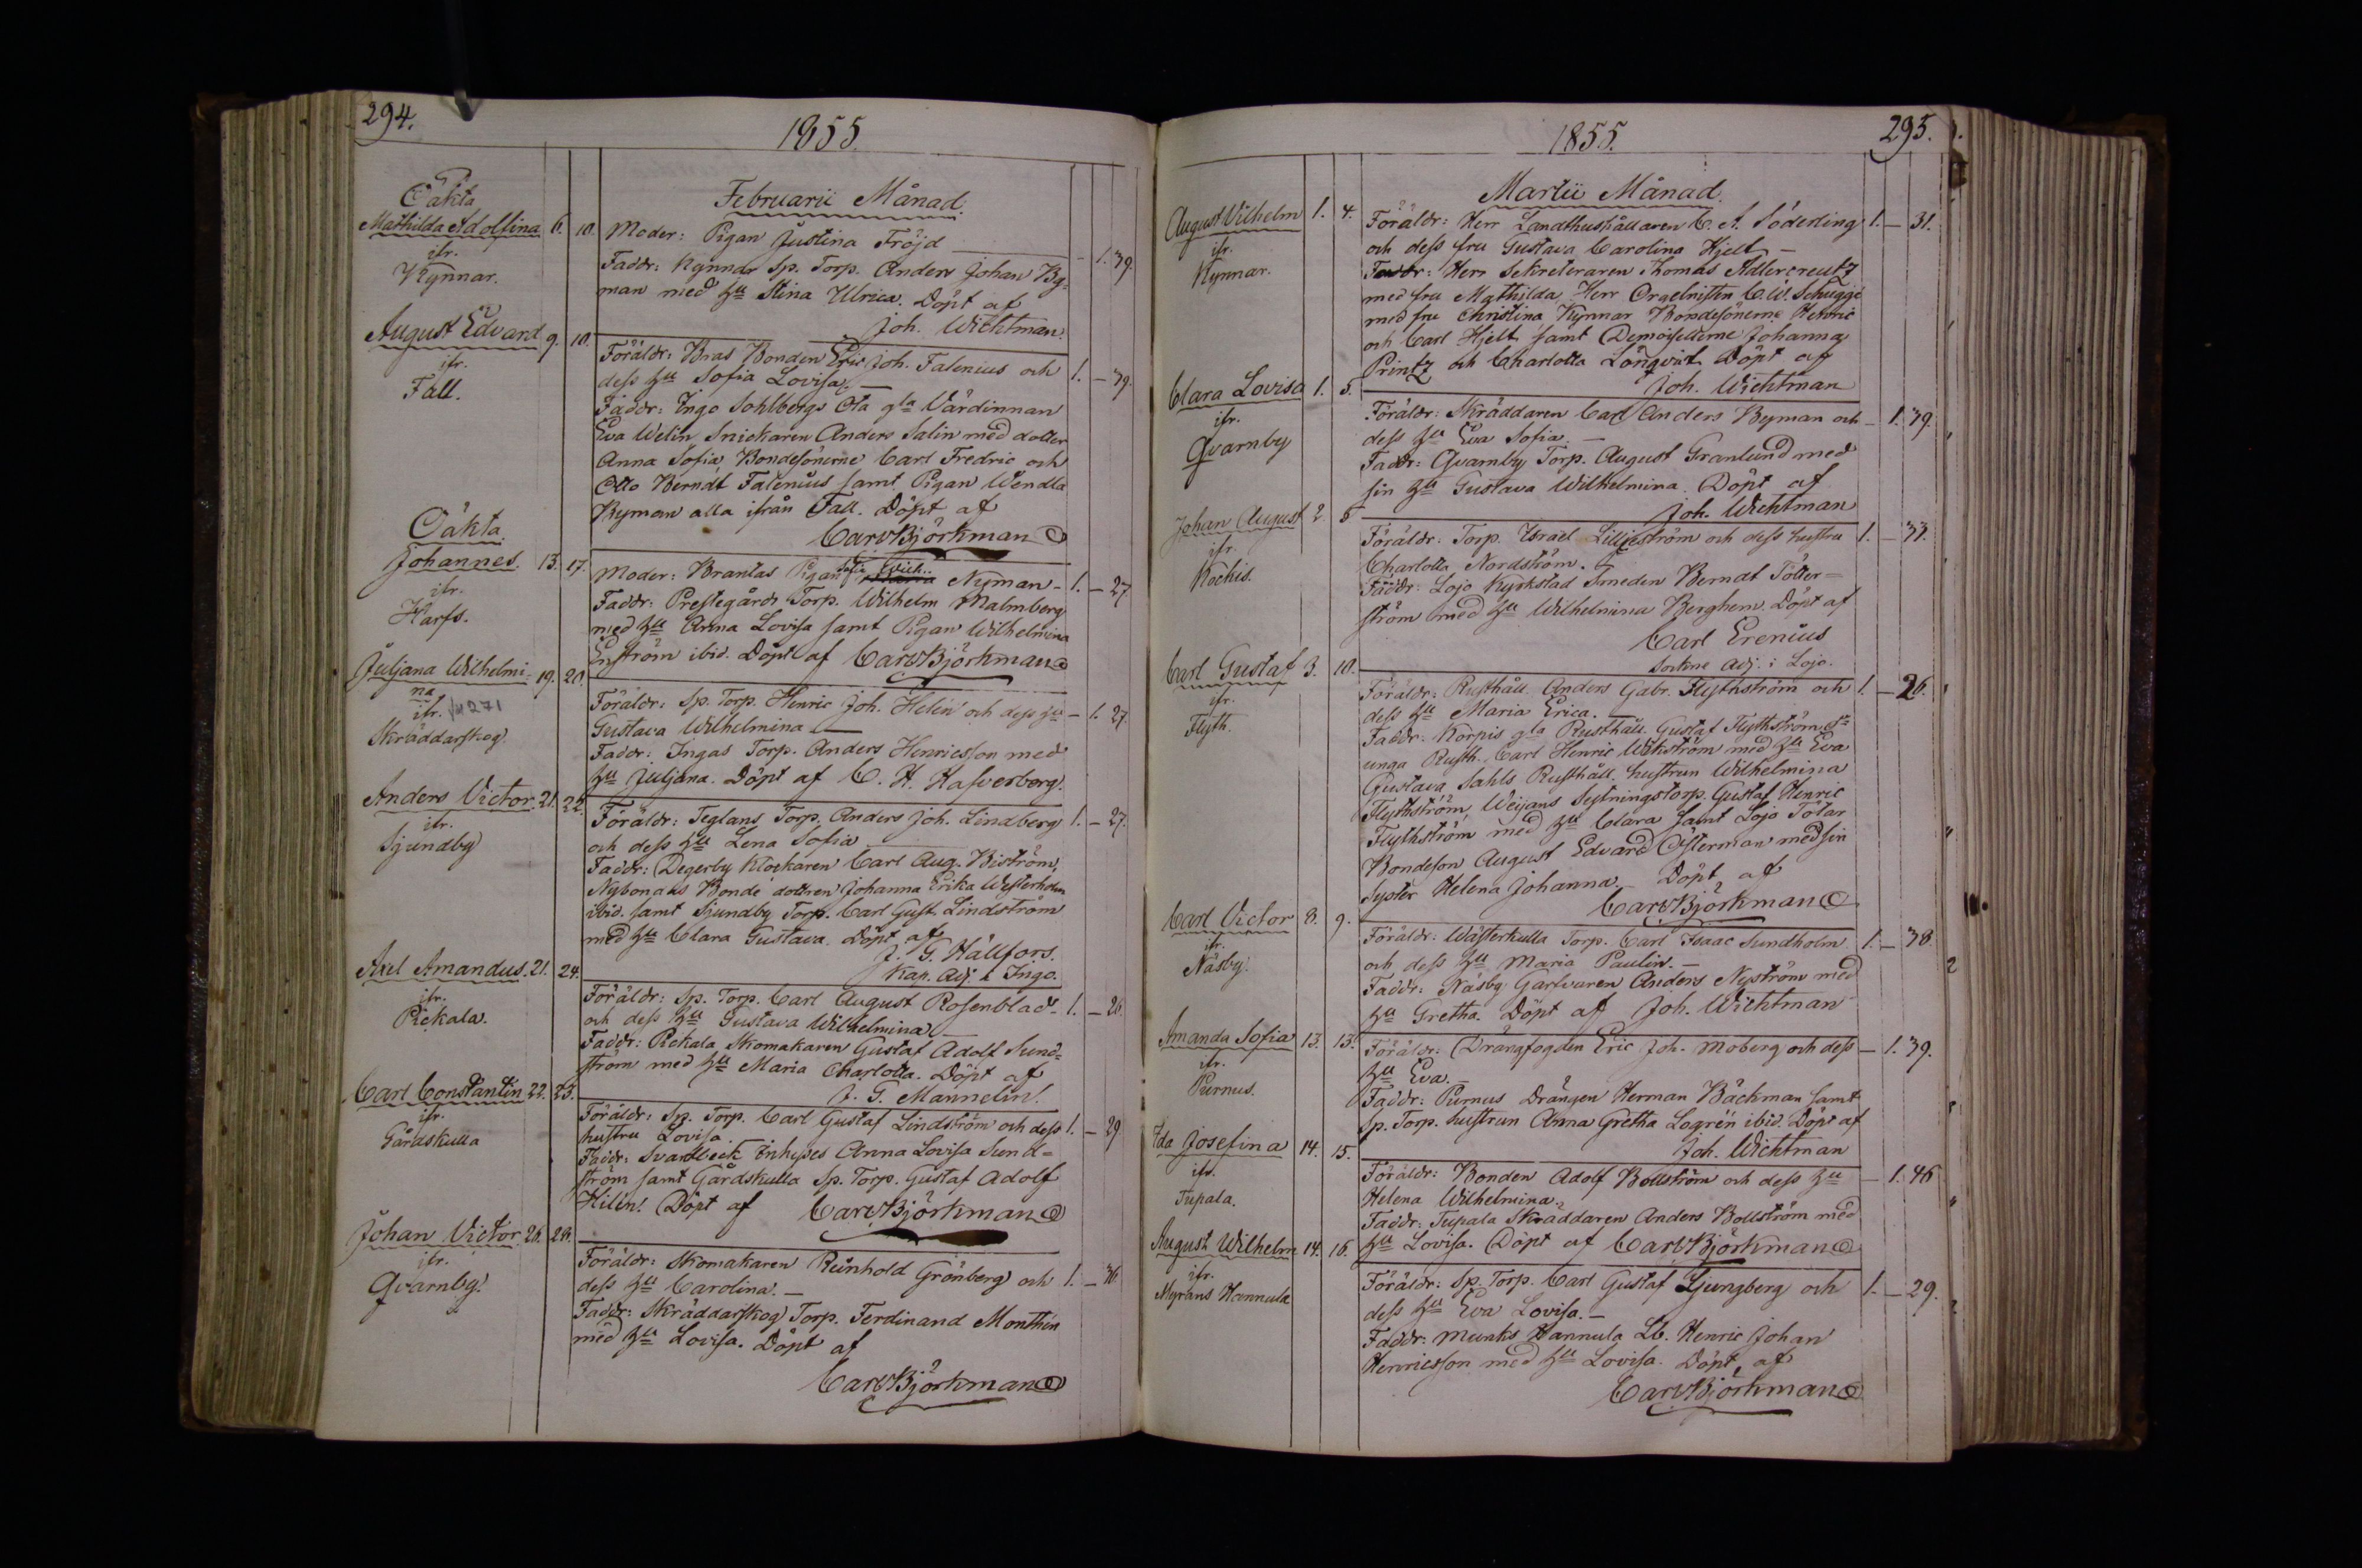 294.
1855.
Februarii Månad.
Oäkta
Mathilda Adolfina 6. 10.
ifr.
Kynnar.
Moder: Pigan Justina Fröjd — 1. 39.
Faddr: Kynnar Sp. Torp. Anders Johan By-
man med hu Stina Ulrica. Döpt af
Joh. Wichtman.
August Edvard 9. 10.
ifr.
Fall.
Föräldr: Bras Bonden Eric Joh. Falenius och 1. — 39.
dess hu Sofia Lovisa. —
Faddr: Ingo Sohlbergs Ota gla Värdinnan
Eva Welin, Snickaren Anders Salin med dotter
Anna Sofia Bondesönerne Carl Fredric och
Otto Berndt Falenius samt Pigan Wendla
Ryman alla ifrån Fall. Döpt af
Carl Björkman
Oäkta
Johannes. 13. 17.
ifr.
Harfs.
Moder: Brantas Pigan Sofia Nyman — 1. — 27
Faddr: Prestegårds Torp. Wilhelm Malmberg
med hu Anna Lovisa samt Pigan Wilhelmina
Enström ibid. Döpt af Carl Björkman
Juljana Wilhelmi- 19. 20.
na
ifr. 271
Skräddarskog
Föräldr: Sp. Torp. Henric Joh. Helin och dess hu — 1. 27.
Gustava Wilhelmina —
Faddr: Ingas Torp. Anders Henricsson med
hu Juljana. Döpt af C. H. Hasverberg.
Anders Victor. 21. 22.
ifr.
Sjundby
Föräldr: Teglans Torp. Anders Joh. Lindberg 1. — 27.
och dess hu Lena Sofia
Faddr: Degerby Klockaren Carl Aug. Biström,
Nybonads Bonde dottren Johanna Erika Westerholm
ibid. samt Sjundby Torp. Carl Gust. Lindström
med hu Clara Gustava. Döpt af
J. G. Hällfors.
Kap. Adj. i Ingo.
Axel Amandus. 21. 24.
ifr.
Pickala.
Föräldr: Sp. Torp. Carl August Rosenblad — 1. — 26.
och dess hu Gustava Wilhelmina
Faddr: Pickala Skomakaren Gustaf Adolf Sund-
ström med hu Maria Charlotta. Döpt af
J. G. Mannelin.
Carl Constantin 22. 25.
ifr.
Gårdskulla
Föräldr: Sp. Torp. Carl Gustaf Lindström och dess 1. — 29
hustru Lovisa.
Faddr: Svartbeck Inhyses Anna Lovisa Sund-
ström samt Gårdskulla Sp. Torp. Gustaf Adolf
Hilén. Döpt af Carl Björkman
Johan Victor 26. 28.
ifr.
Qvarnby.
Föräldr: Skomakaren Reinhold Grönberg och 1. — 36
dess hu Carolina. —
Faddr: Skräddarskog Torp. Ferdinand Monthin
med hu Lovisa. Döpt af
Carl Björkman
1855.
295.
Martii Månad.
August Vilhelm 1. 4.
ifr.
Kynnar.
Föräldr: Herr Landthushållaren C. A. Söderling 1. — 31.
och dess fru Gustava Carolina Hjelt —
Faddr: Herr Sekreteraren Thomas Adlercreutz
med fru Mathilda, Herr Orgelnisten C. W. Schugge
med fru Christina Kynnar Bondesönerne Henric
och Carl Hjelt samt Demoisellerne Johanna
Printz och Charlotta Lönqvist Döpt af
Joh. Wichtman
Clara Lovisa 1. 5.
ifr.
Qvarnby
Föräldr: Skräddaren Carl Anders Byman och — 1. 39.
dess hu Eva Sofia. —
Faddr: Qvarnby Torp. August Granlund med
sin hu Gustava Wilhelmina. Döpt af
Joh. Wichtman
Johan August 2. 5
ifr.
Kockis.
Föräldr: Torp. Israel Liljeström och dess hustru 1. — 37.
Charlotta Nordström.
Faddr: Lojo Kyrkstad Smeden Berndt Tötter-
ström med hu Wilhelmina Berghem. Döpt af
Carl Erenius
Sockne Adj. i Lojo.
Carl Gustaf 3. 10.
ifr.
Flyth.
Föräldr: Rusthåll. Anders Gabr. Flythström och 1. — 26.
dess hu Maria Erica. —
Faddr: Korpis gla Rusthåll. Gustaf Flythström
unga Rusth. Carl Henric Wikström med hu Eva
Gustava, Sahls Rusthåll. hustrun Wilhelmina
Flythström, Weijans Sytningstorp. Gustaf Henric
Flythström med hu Clara samt Lojo Tötar
Bondeson August Edvard Österman med sin
Syster Helena Johanna. Döpt af
Carl Björkman
Carl Victor 8. 9.
ifr.
Näsby.
Föräldr: Wästerkulla Torp. Carl Isaac Sundholm 1. — 38.
och dess hu Maria Paulin. —
Faddr: Näsby Garfvaren Anders Nyström med
hu Gretha. Döpt af Joh. Wichtman
Amanda Sofia 13. 13.
ifr.
Purnus.
Föräldr: Drängfogden Eric Joh. Moberg och dess — 1. 39.
hu Eva.
Faddr: Purnus Drängen Herman Bäckman samt
Sp. Torp. hustrun Anna Gretha Logrén ibid. Döpt af
Joh. Wichtman
Ida Josefina 14. 15.
ifr.
Tupala.
Föräldr: Bonden Adolf Bollström och dess hu — 1. 46
Helena Wilhelmina.
Faddr: Tupala Skräddaren Anders Bollström med
hu Lovisa. Döpt af Carl Björkman
August Wilhelm 14. 16.
ifr.
Myrans Hannula
Föräldr: Sp. Torp. Carl Gustaf Ljungberg och 1. — 29.
dess hu Eva Lovisa. —
Faddr: Munks Hannula Lb. Henric Johan
Henricsson med hu Lovisa. Döpt af
Carl Björkman